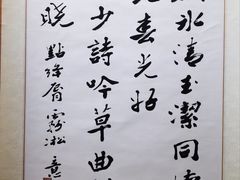 冰清玉潔同
光春光好
少詩吟草曲
晓
點絳脣霧凇